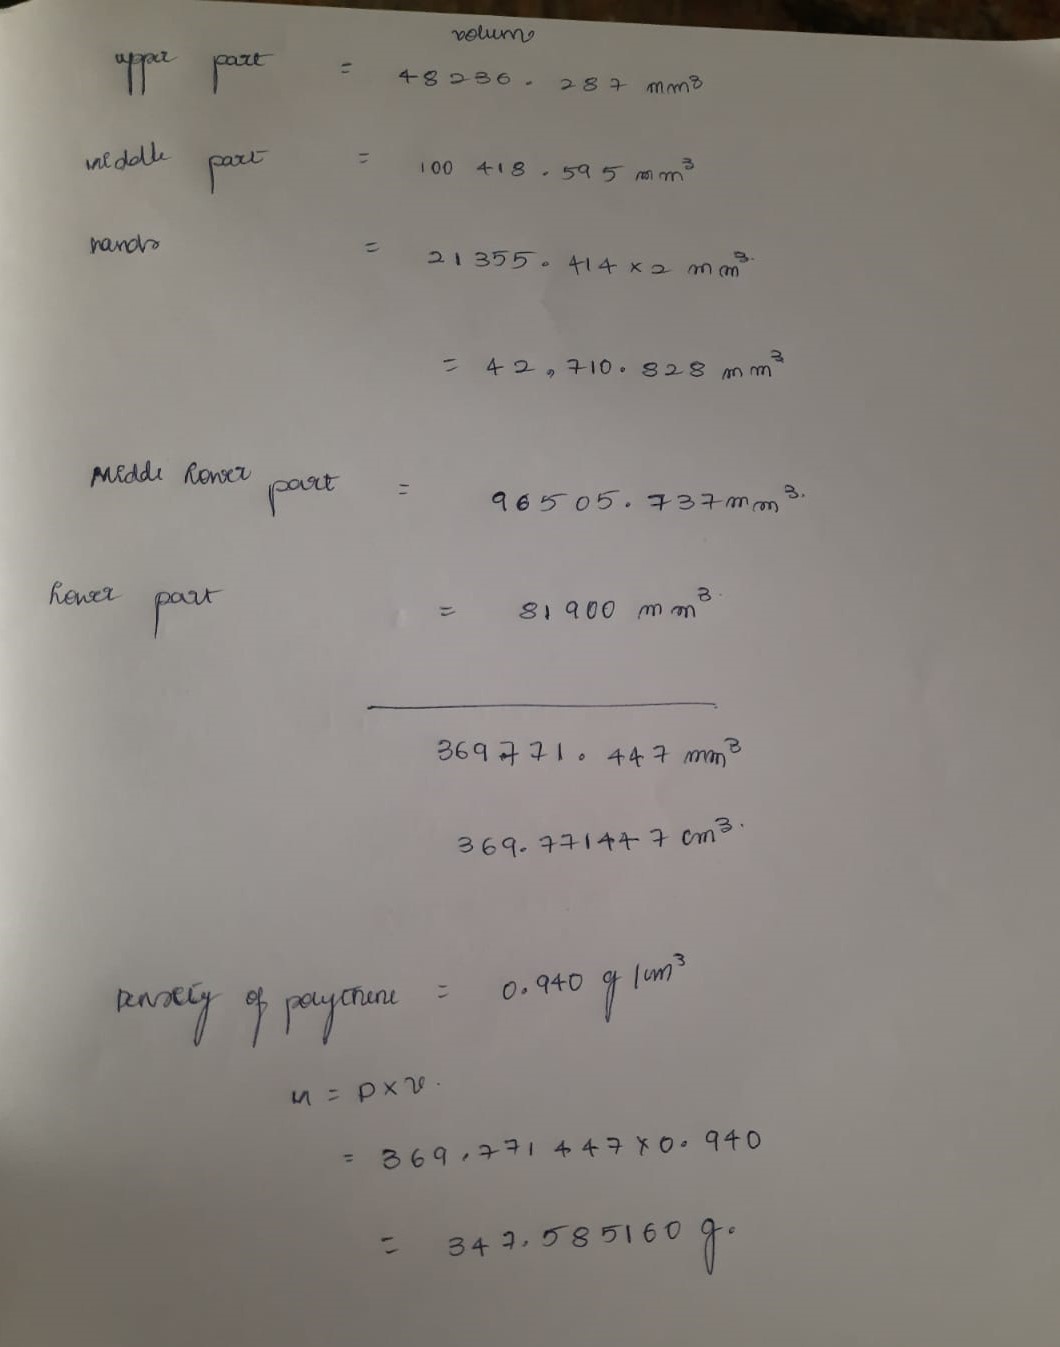 volum
upper part = 48236.287 mm³
middle part = 100 418.595 mm³
hands = 21355.414 x 2 mm³.
= 42,710.828 mm³
Middle lower part = 96505.737 mm³.
lower part = 81900 mm³.
369771.447 mm³
369.771447 cm³.
Density of polythene = 0.940 g/cm³
M = P x V.
= 369.771447 x 0.940
= 347.585160 g.